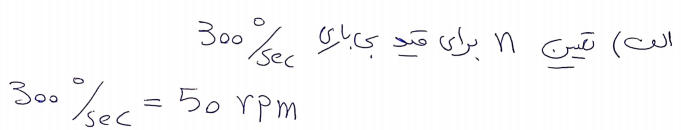 الف) تعیین n برای قید بی باری 300°/sec
300°/sec = 50 rpm